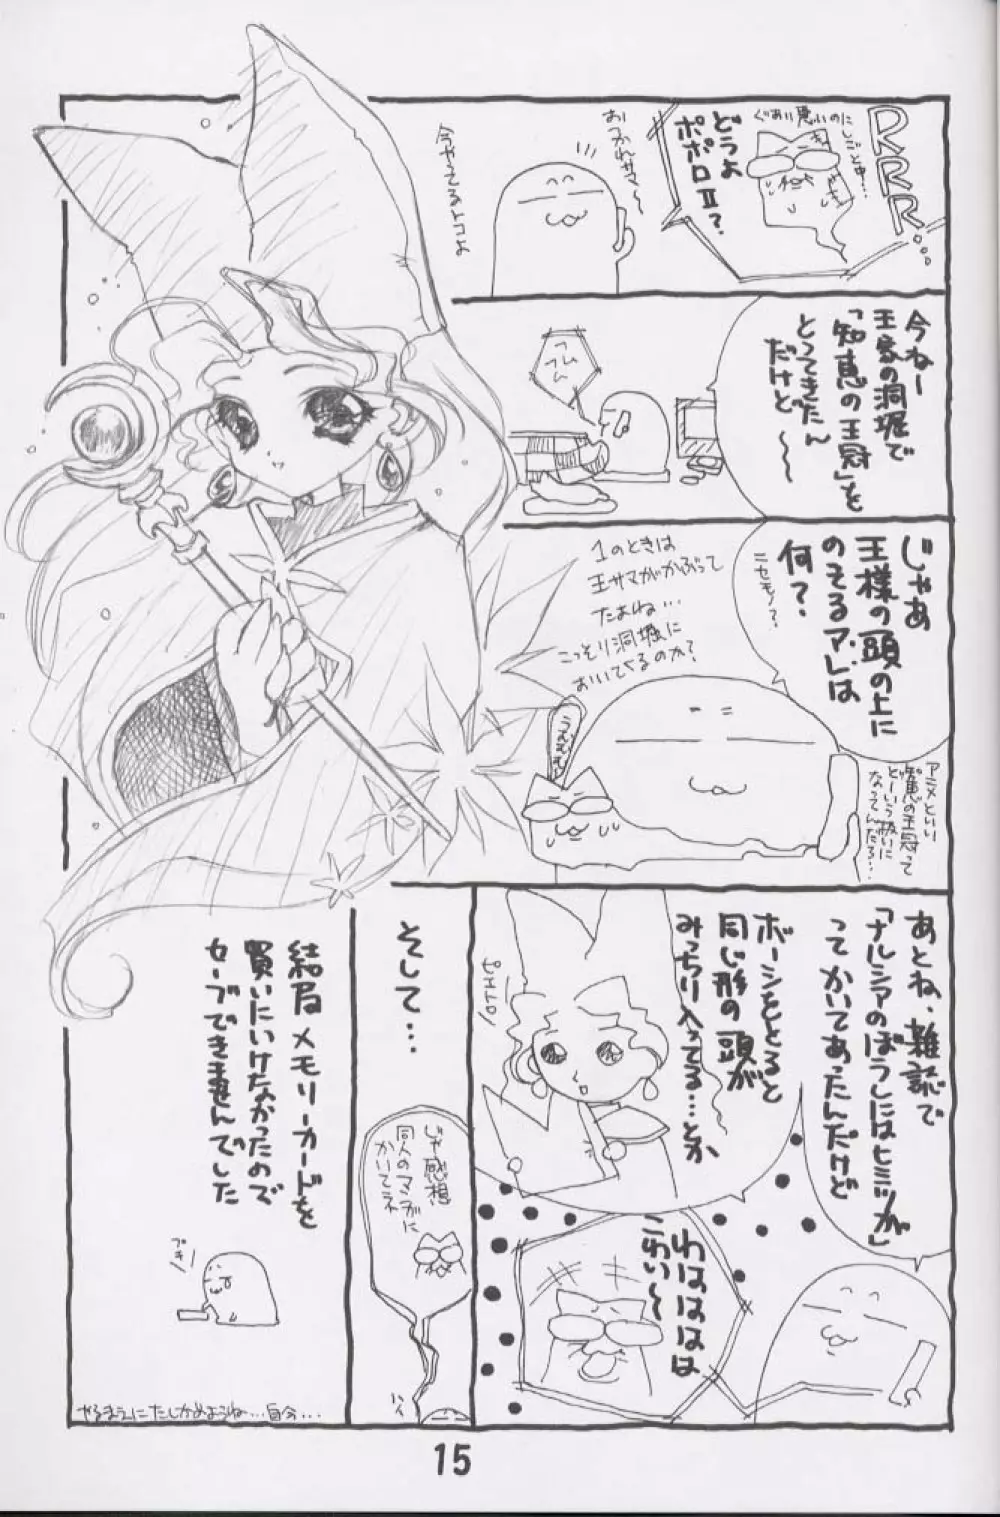 RRR...
ぐあい悪いのにしごと中…
どうよ
ポポロⅡ?
おつかれサマー
今やってるトコよ
今ねー
王家の洞堀で
「知恵の王冠」を
とってきたん
だけど〜〜
フム
フム
じゃあ
王様の頭の上に
のってるアレは
何?
ニセモノ?
1のときは
王サマがかぶって
たよね…
こっそり洞堀に
おいてくるのか?
うむむ
アニメといい
知恵の王冠って
どーいう扱いに
なってんだろ…
あとね、雑誌で
「ナルシアのぼうしにはヒミツが」
ってかいてあったんだけど
ボーシをとると
同じ形の頭が
みっちり入ってる…とか
ピエトロ!
わはははは
こわい〜
そして…
じゃ感想
同人のマンガに
かいてネ
ハイ
結局メモリーカードを
買いにいけなかったので
セーブできませんでした
プキ
やるまえにたしかめようね…自分…
15